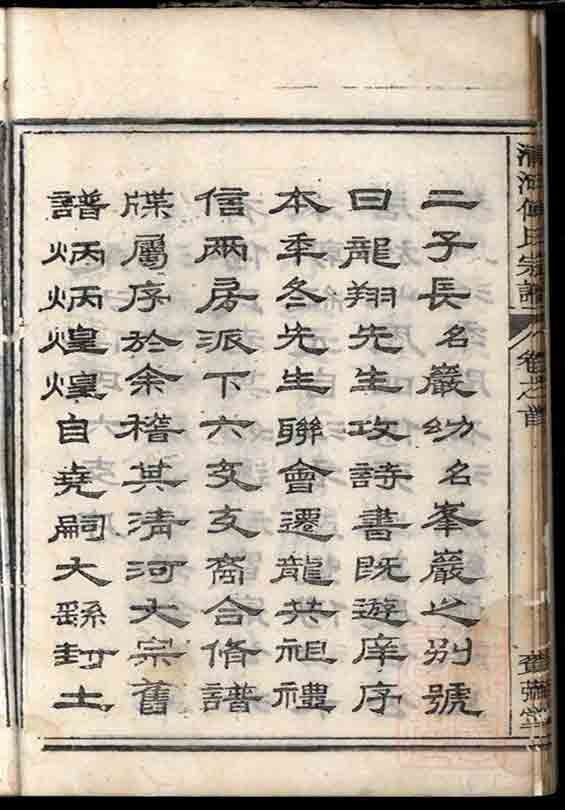 二子長名巖幼名峯巖之別號
曰龍翔先生攻詩書既遊庠序
本年冬先生聯會遷龍共祖禮
信兩房派下六支支裔合脩譜
牒屬序於余稽其清河大宗舊
譜炳炳煌煌自堯嗣大繇封土
清河傅氏宗譜
卷之首